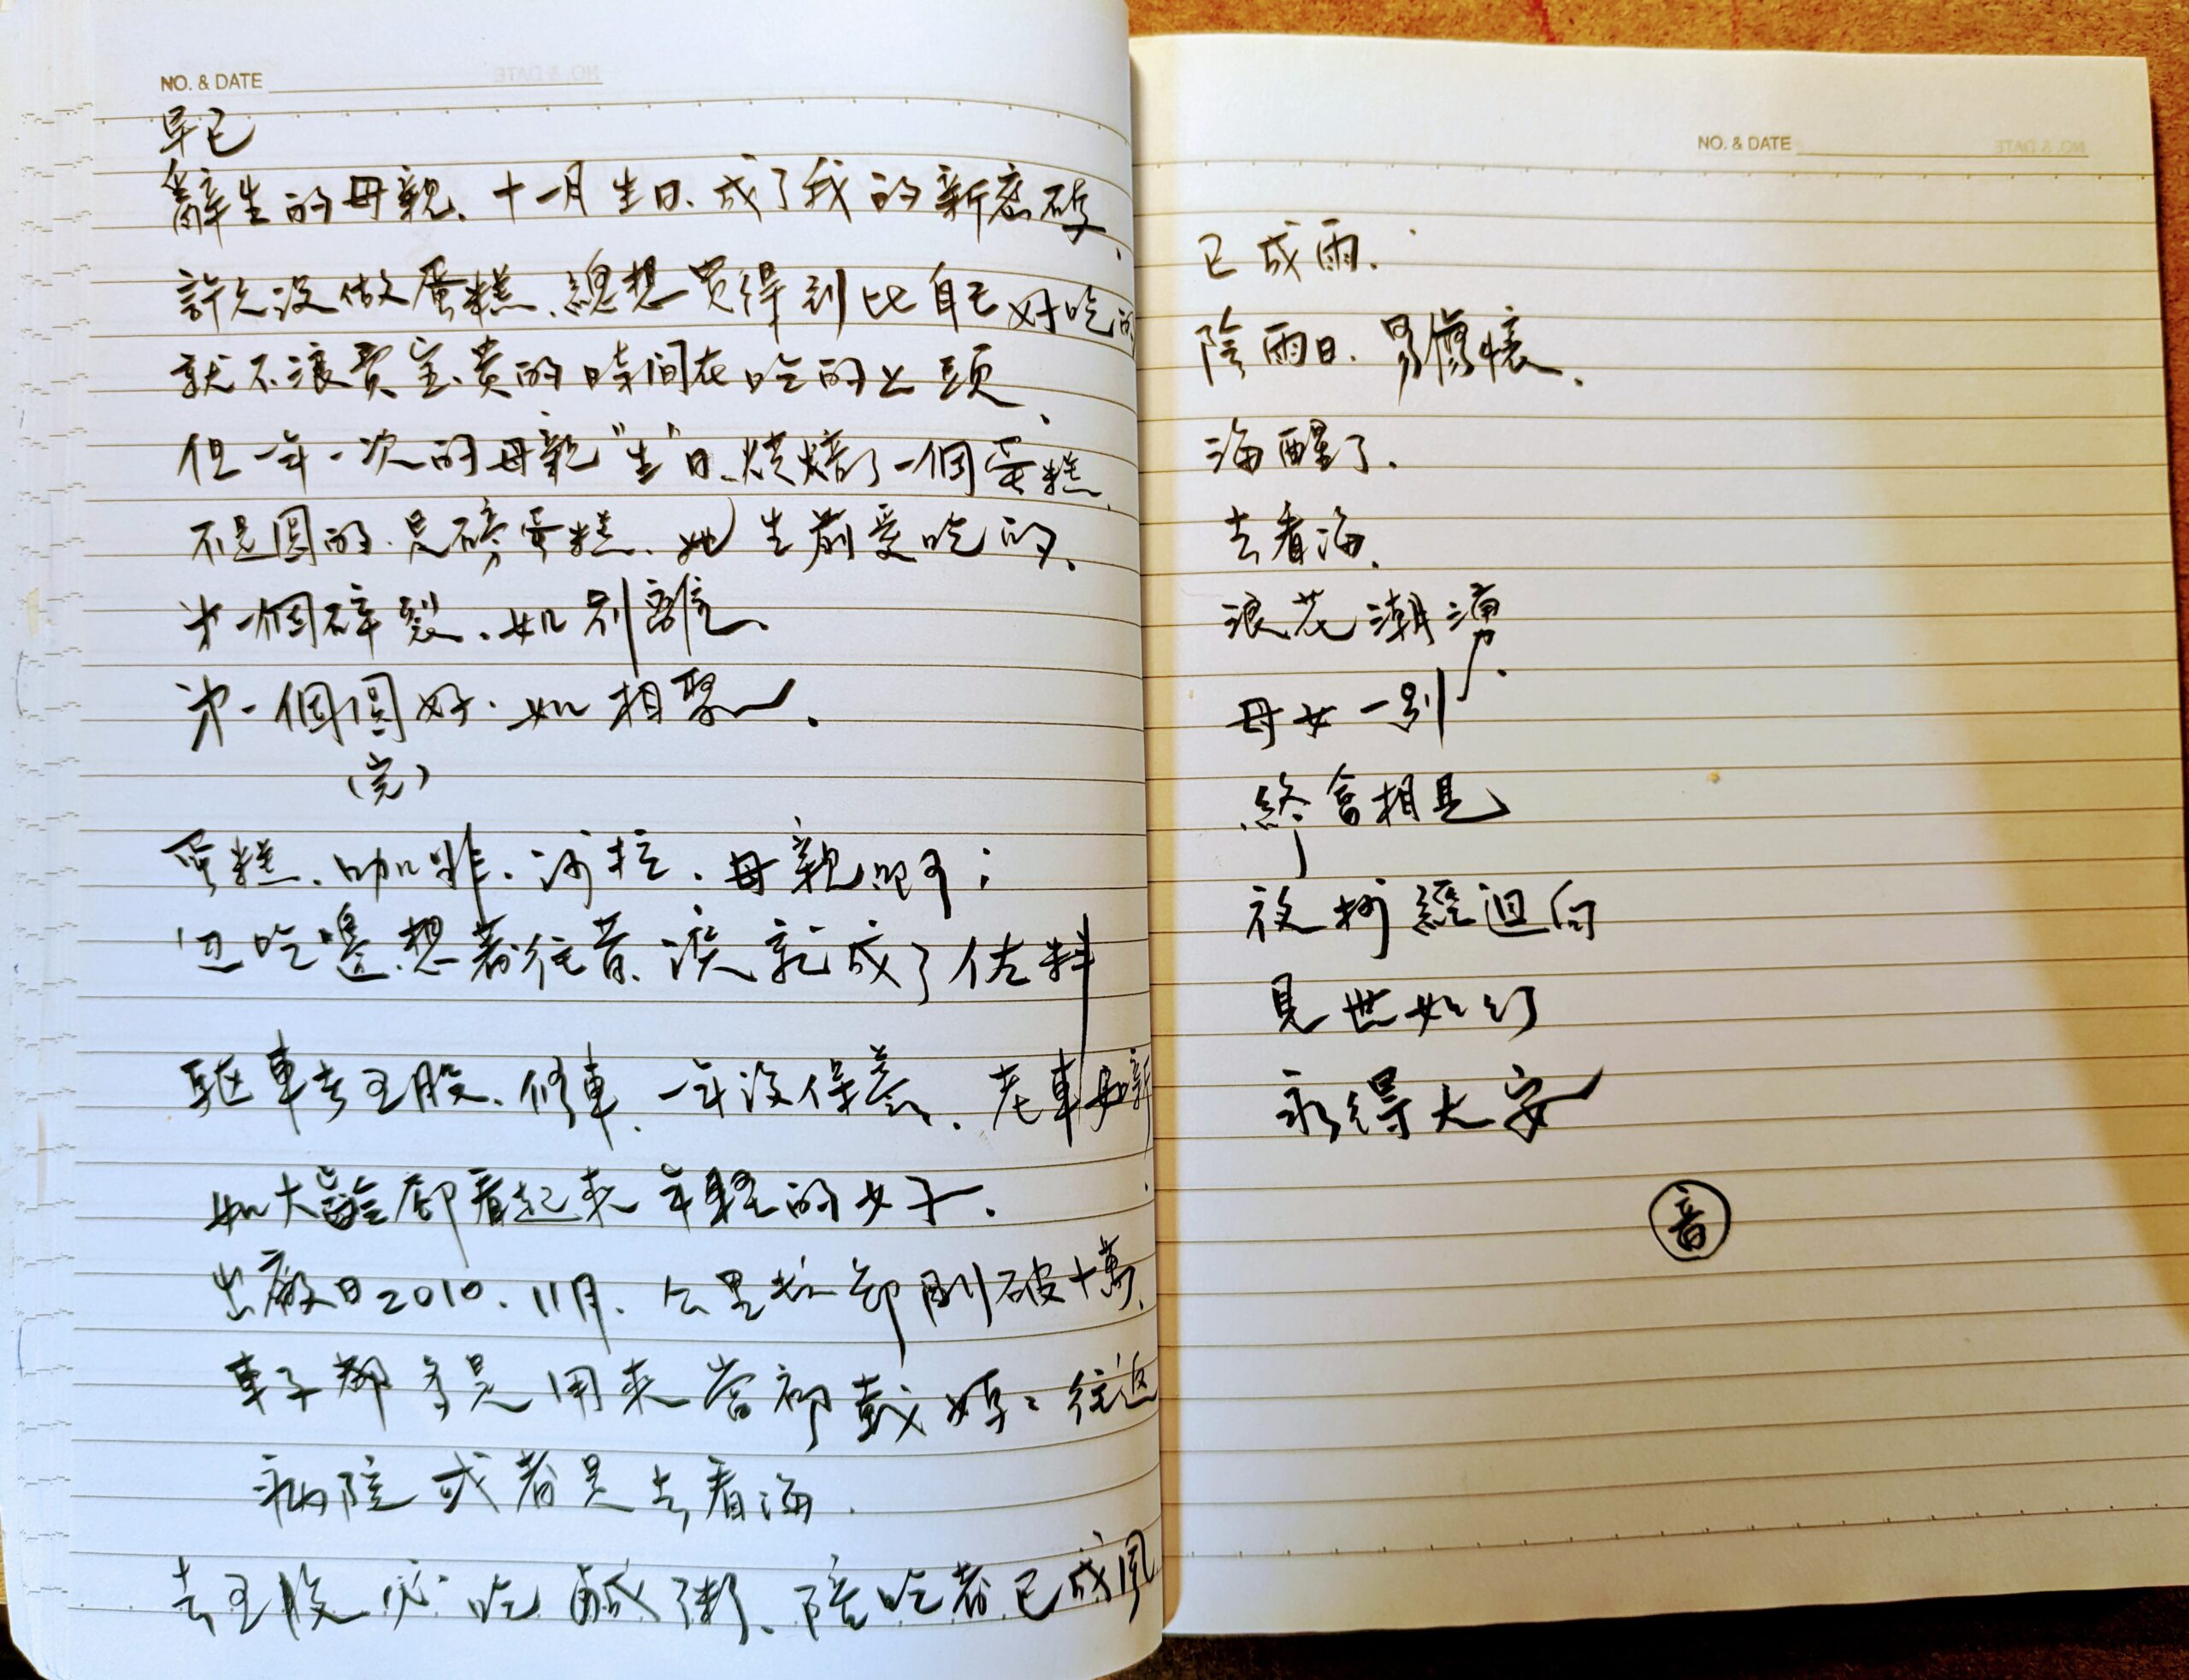 NO. & DATE
早已
辭生的母親、十一月生日、成了我的新悲
許久沒做蛋糕、總想買得到比自己好吃的
就不浪費寶貴的時間在吃的上頭、
但一年一次的母親"生"日、烘焙了一個蛋糕、
不是圓的、是磅蛋糕、她生前愛吃的、
第一個碎裂、如別離、
第一個圓好、如相聚、
(完)
蛋糕、咖啡、沙拉、母親
邊吃邊想著往昔、淚就成了佐料
驅車去五股、修車、一年沒保養、老車如新
如大齡卻看起來年輕的女子、
出廠日2010、11月、公里數卻剛破十萬、
車子都多是用來當初載媽媽往返
病院或者是去看海、
去五股必吃鹹粥、陪吃者已成風
NO. & DATE
已成雨、
陰雨日、易傷懷、
海醒了、
去看海、
浪花潮湧、
母女一別
終會相見
夜抄經迴向
見世如幻
永得大安
音